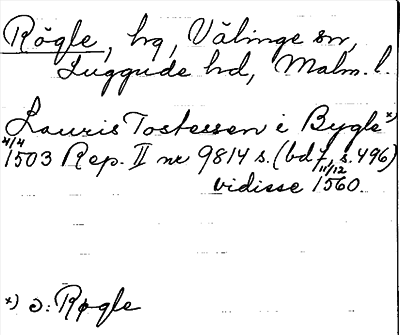 Rögle, hg, Välinge sn,
Luggude hd, Malm. l.
Lauris Tostessen i Bygle*)
4/4 1503 Rep. II nr 9814 s. (bd 7, s. 496)
vidisse 11/12 1560.
*) ɔ: Røgle